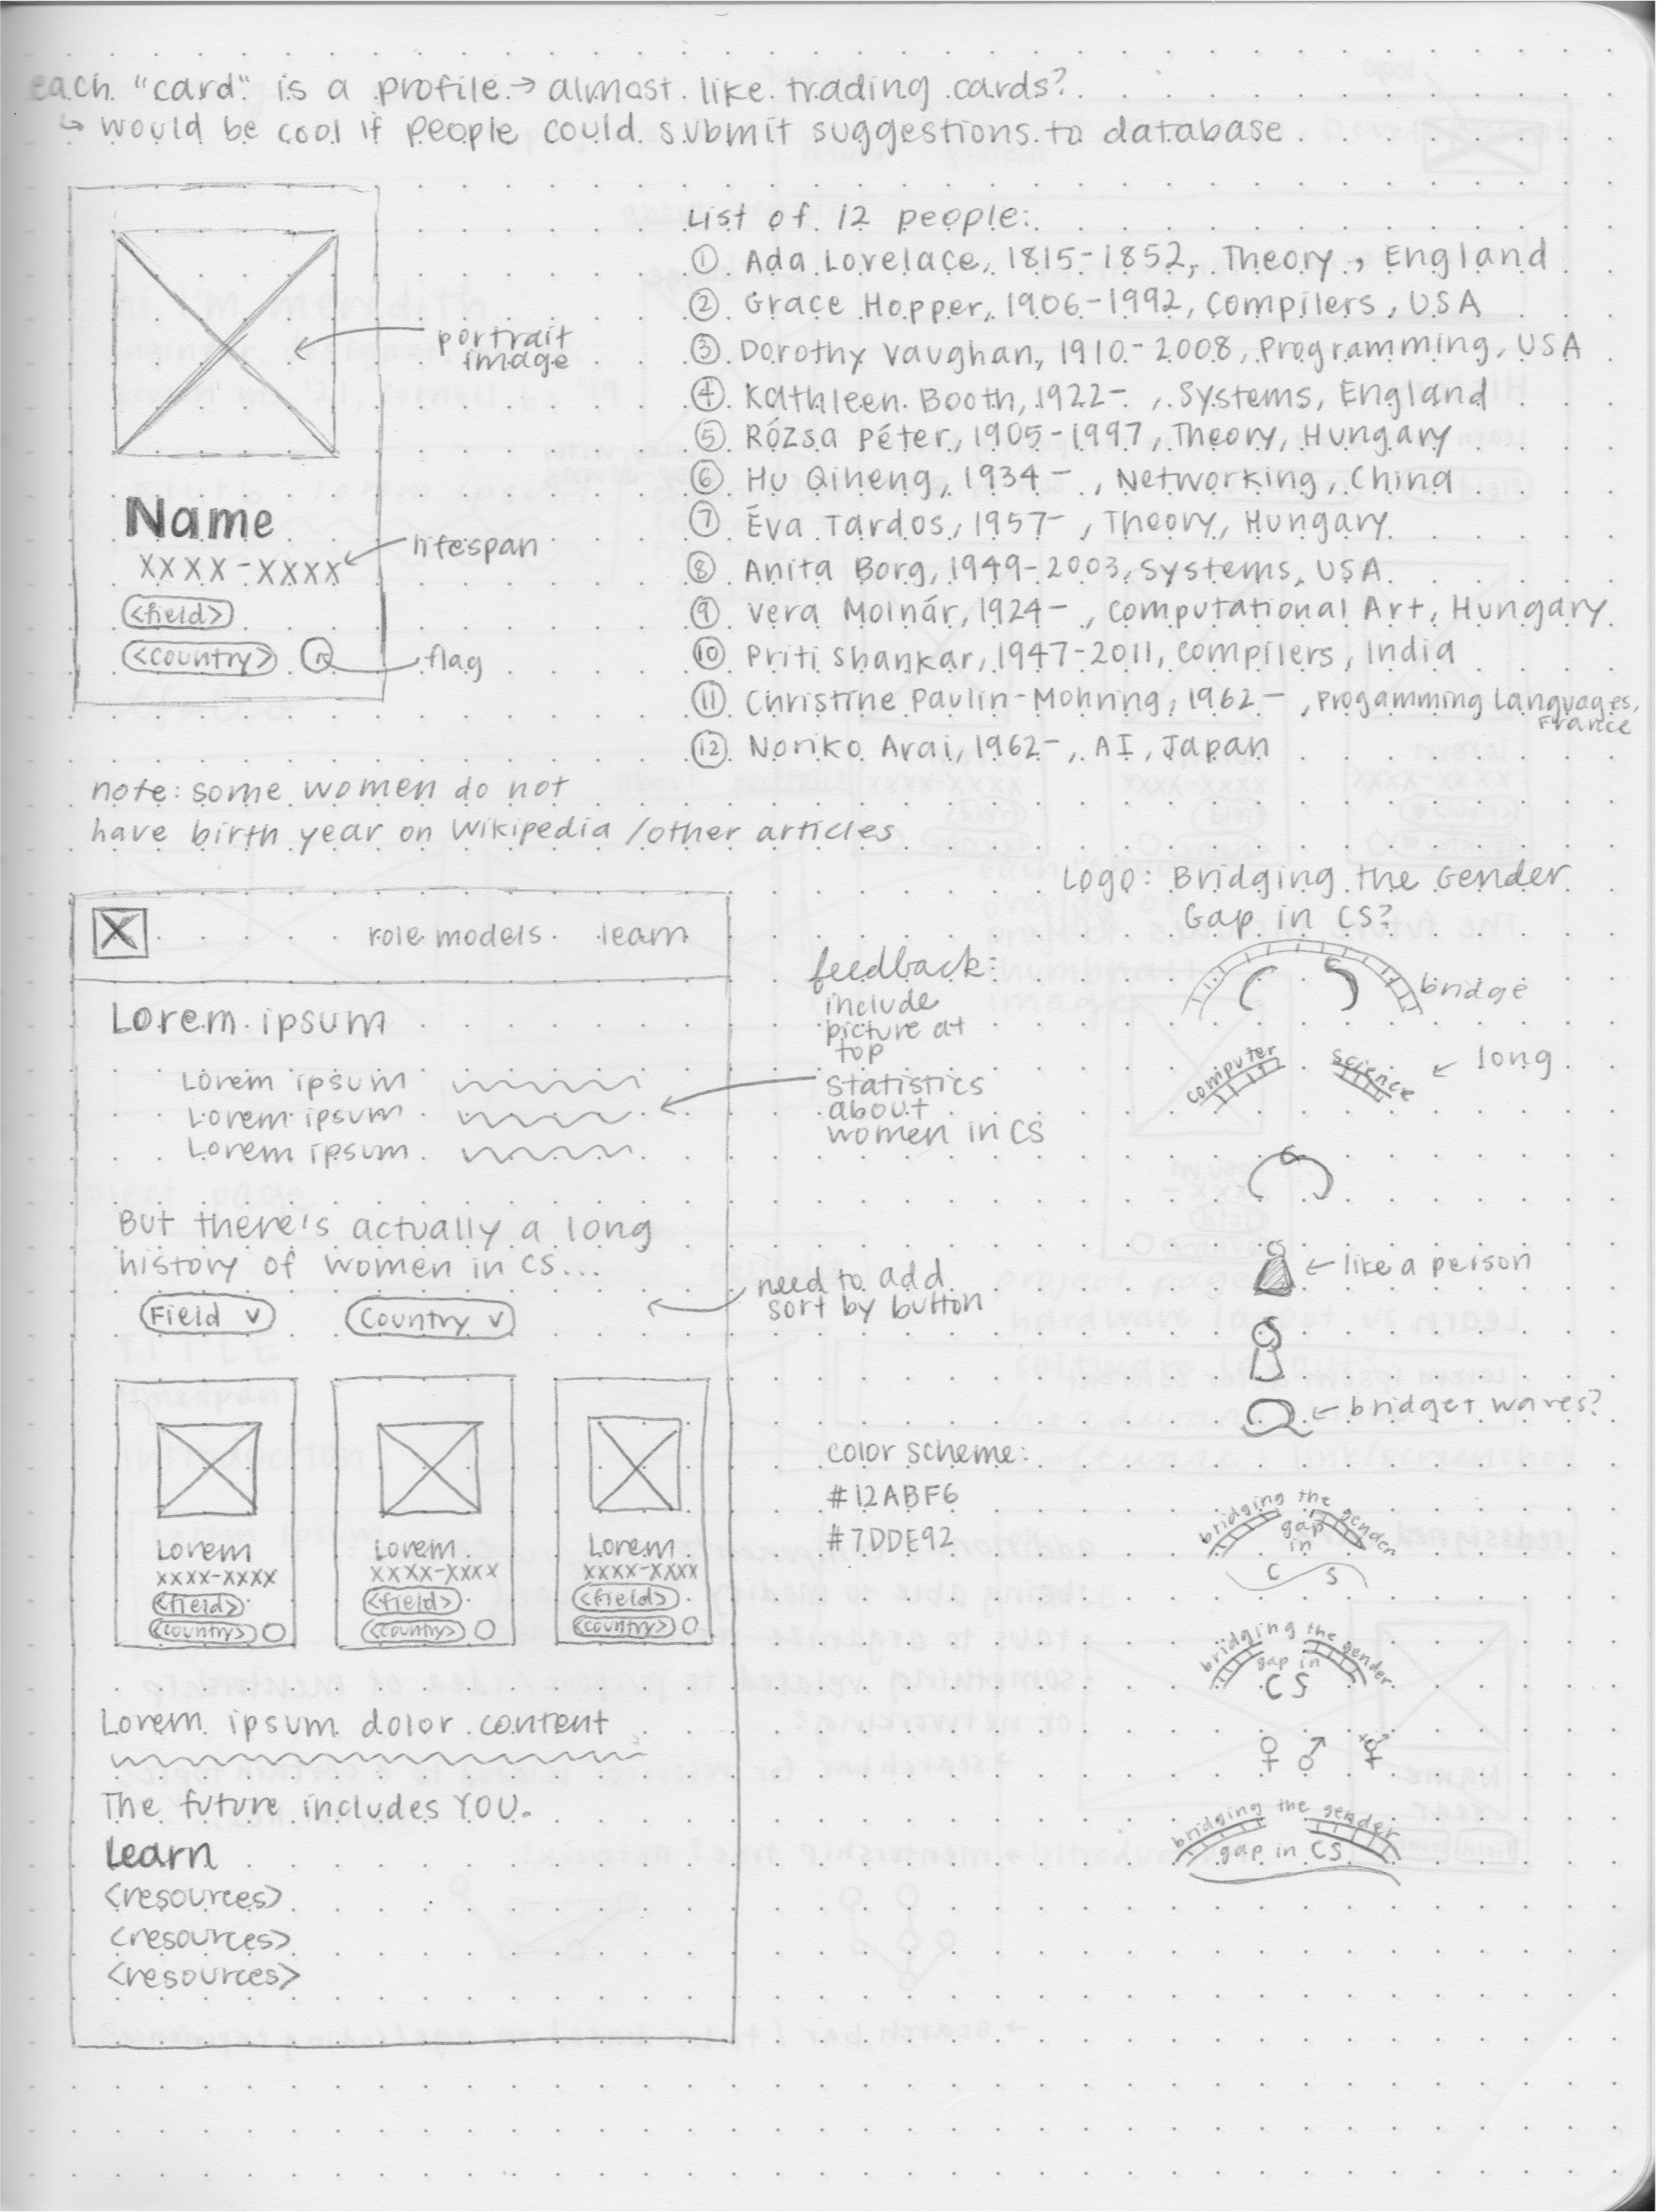 each "card" is a profile → almost like trading cards?
↳ would be cool if people could submit suggestions to database
portrait
image
Name
XXXX-XXXX
lifespan
<field>
<country>
flag
List of 12 people:
① Ada Lovelace, 1815-1852, Theory, England
② Grace Hopper, 1906-1992, Compilers, USA
③ Dorothy Vaughan, 1910-2008, Programming, USA
④ Kathleen Booth, 1922- , Systems, England
⑤ Rózsa Péter, 1905-1997, Theory, Hungary
⑥ Hu Qiheng, 1934- , Networking, China
⑦ Éva Tardos, 1957- , Theory, Hungary
⑧ Anita Borg, 1949-2003, Systems, USA
⑨ Vera Molnár, 1924- , Computational Art, Hungary
⑩ Priti Shankar, 1947-2011, Compilers, India
⑪ Christine Paulin-Mohring, 1962- , Progamming Languages,
France
⑫ Noriko Arai, 1962-, AI, Japan
note: some women do not
have birth year on Wikipedia /other articles
role models learn
Lorem ipsum
Lorem ipsum
Lorem ipsum
Lorem ipsum
But there's actually a long
history of women in CS...
Field v Country v
Lorem
xxxx-xxxx
<field>
<country>
Lorem
xxxx-xxxx
<field>
<country>
Lorem
xxxx-xxxx
<field>
<country>
Lorem ipsum dolor content
The future includes YOU.
Learn
<resources>
<resources>
<resources>
feedback:
include
picture at
top
statistics
about
women in CS
need to add
sort by button
color scheme:
#12ABF6
#7DDE92
Logo: Bridging the Gender
Gap in CS?
bridge
computer science ← long
← like a person
← bridget waves?
bridging the gender
gap
in
C S
bridging the gender
gap in
CS
♀ ♂ ⚧
bridging the gender
gap in CS